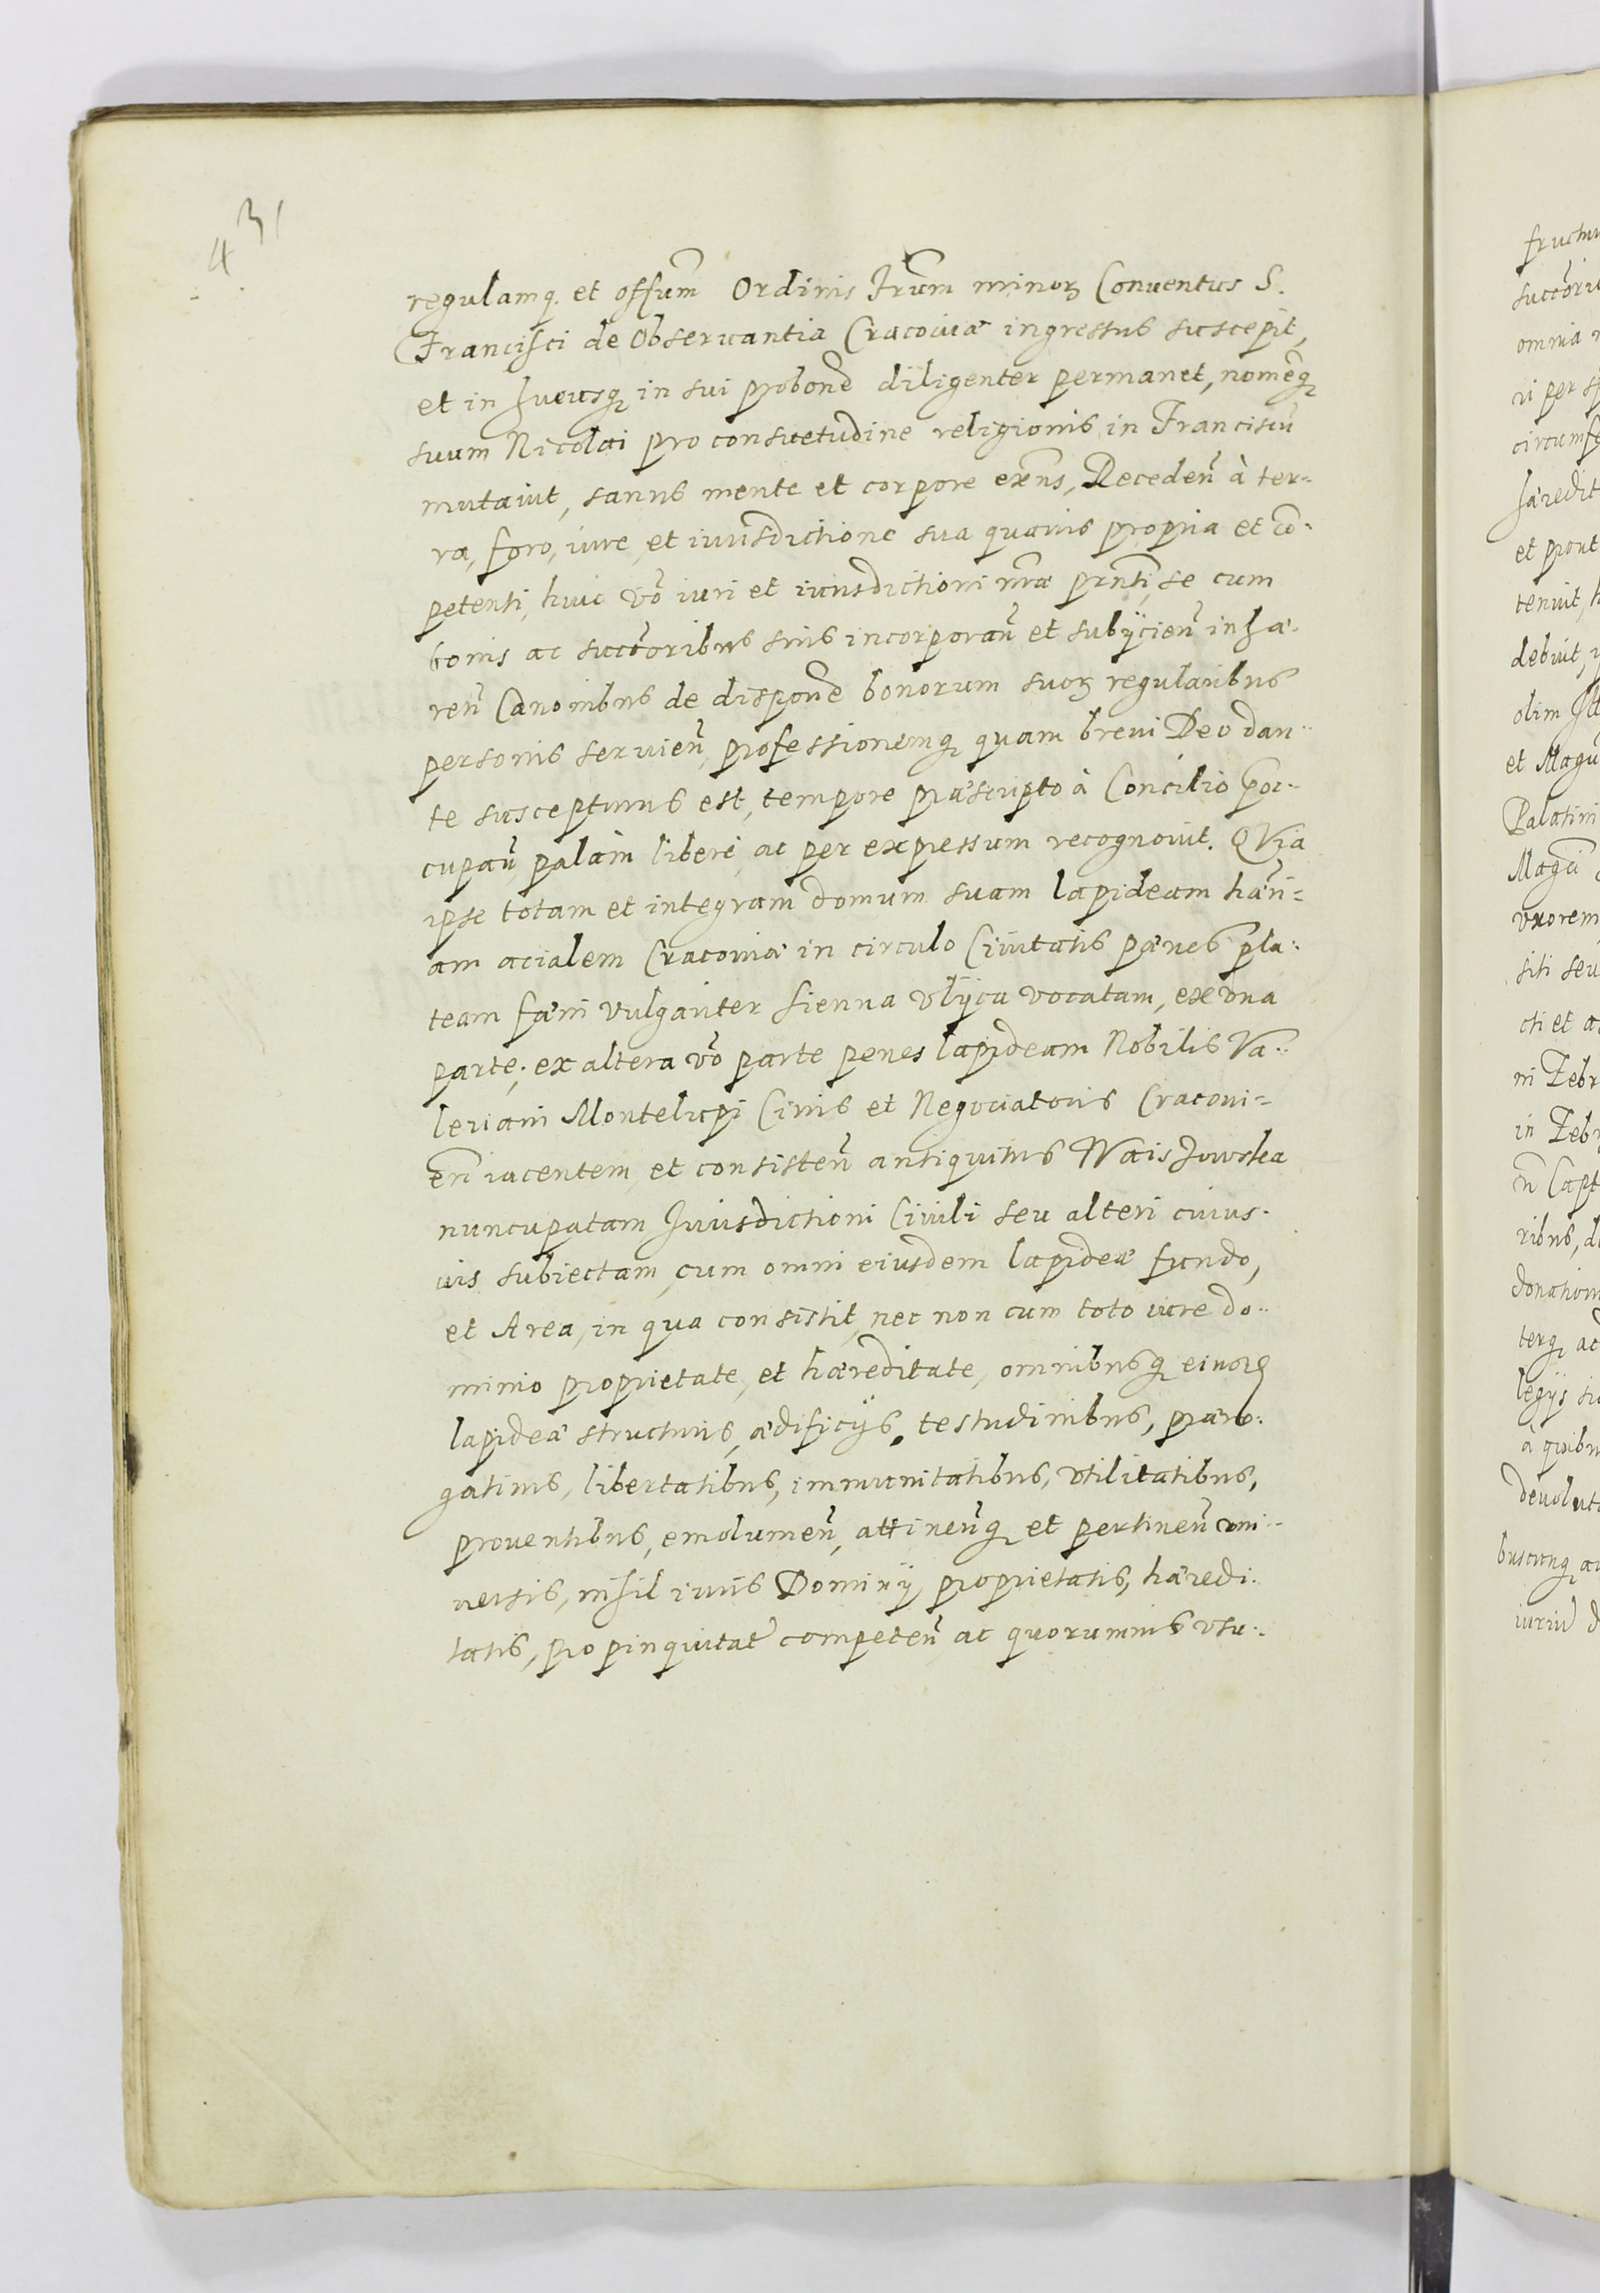 431
regulamq. et offum̃ Ordinis Frum̃ minorꝫ Conuentus S.
Francisci de Obseruantia Cracouiæ ingressus suscepit,
et in hucusqꝫ in sui probone̅ diligenter permanet, nome̅qꝫ
suum Nicolai pro consuetudine religionis in Franciscu̅
mutauit, sanus mente et corpore exn̅s, Receden̅ à ter-
ra, foro, iure, et iurisdictione sua quauis propria et co̅-
petenti, huic vo̅ iuri et iurisdictioni nr̅æ prn̅ti, se cum
bonis ac succoribus suis incorporan̅ et subijcien̅ inhæ-
ren̅ Canonibus de dispone̅ bonorum suorꝫ regularibus
personis seruien̅, professionemqꝫ quam breui Deo dan-
te suscepturus est, tempore præscripto à Concilio præoc-
cupan̅, palàm liberè, ac per expressum recognouit. QVia
ipse totam et integram domum suam lapideam hæn̅-
am acialem Cracouiæ in circulo Ciuitatis pænes pla-
team fæni vulgariter Sienna vlijca vocatam, ex vna
parte; ex altera vo̅ parte penes lapideam Nobilis Va-
leriani Montelupi Ciuis et Negociatoris Cracoui-
en̅ iacentem, et consisten̅ antiquitus Waishowska
nuncupatam Jurisdictioni Ciuili seu alteri cuius-
uis subiectam, cum omni eiusdem lapideæ fundo,
et Area, in qua consistit, nec non cum toto iure do-
minio proprietate, et hæreditate, omnibusqꝫ
lapideæ structuris, ædificijs, testudinibus, præro-
gatiuis, libertatibus, immunitatibus, vtilitatibus,
prouentibus, emolumen̅, attinen̅qꝫ et pertinen̅ vni-
uersis, nihil iuris Dominij proprietatis, hæredi-
tatis, propinquitat̅ competen̅, ac quorumuis vsu-
omnia
et prout
tenuit,
debuit,
olim
Palatini
vxorem
siti seu